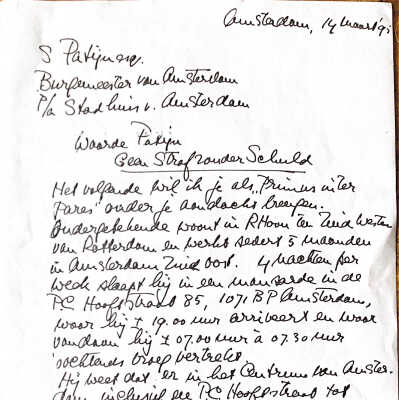 Amsterdam, 14 maart '9
S Patijn esq.
Burgemeester van Amsterdam
P/a Stadhuis v. Amsterdam
Waarde Patijn
Geen Straf zonder Schuld
Het volgende wil ik je als "Primus inter
Pares" onder je aandacht brengen.
Ondergetekende woont in Rhoon ten Zuid Westen
van Rotterdam en werkt sedert 5 maanden
in Amsterdam Zuid Oost. 4 nachten per
week slaapt hij in een mansarde in de
P.C. Hooftstraat 85, 1071 BP Amsterdam,
waar hij ± 19.00 uur arriveert en waar
vandaan hij ± 07.00 uur à 07.30 uur
's ochtends vroeg vertrekt.
Hij weet dat er in het Centrum van Amster-
dam inclusief de P.C. Hooftstraat tot